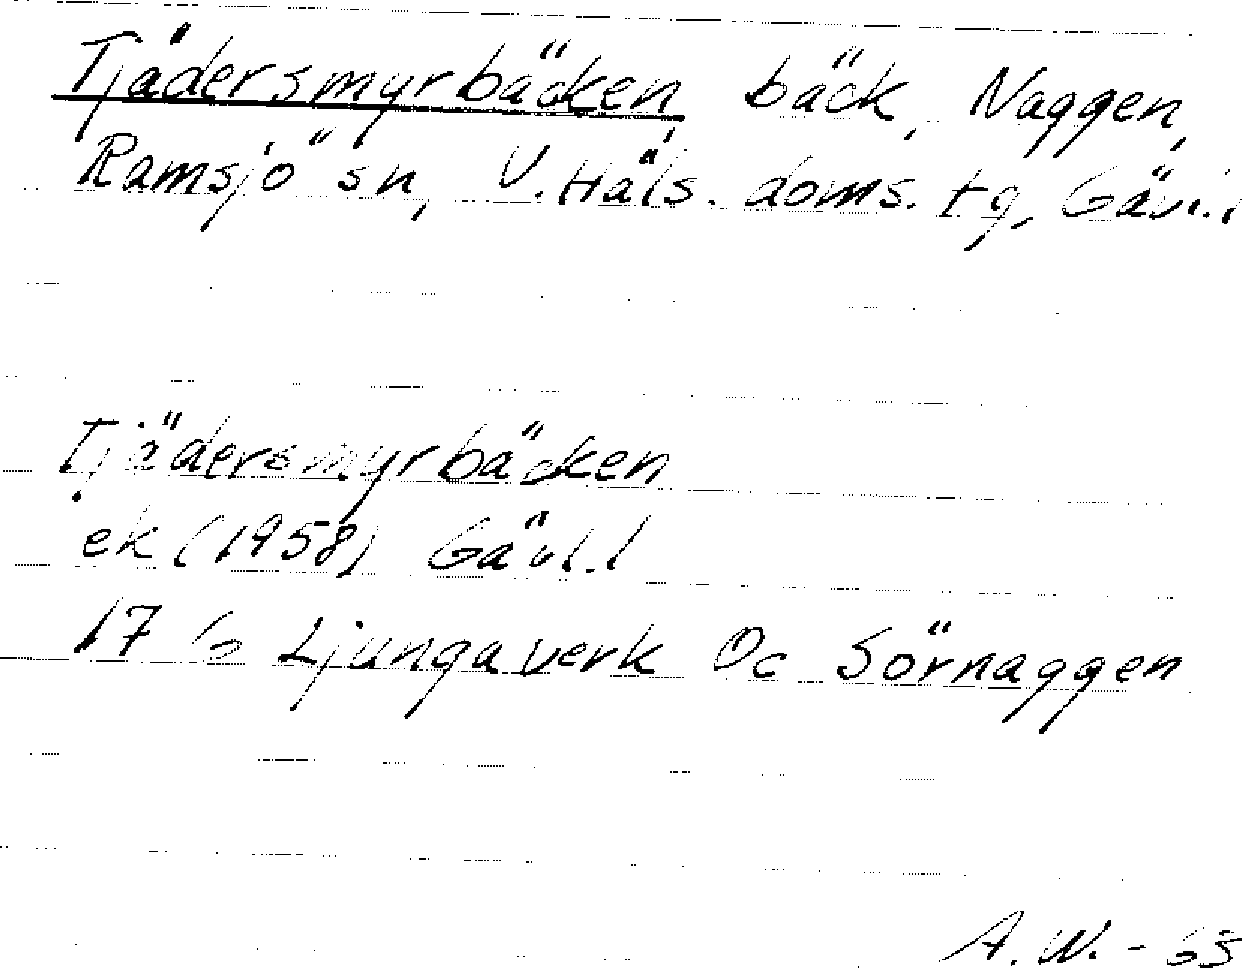 Tjädersmyrbäcken, bäck, Naggen,
Ramsjö sn, V. Häls. doms. tg, Gävl.l
Tjädersmyrbäcken
ek (1958) Gävl.l
17 G Ljungaverk Oc Sörnaggen
A.W. - 63